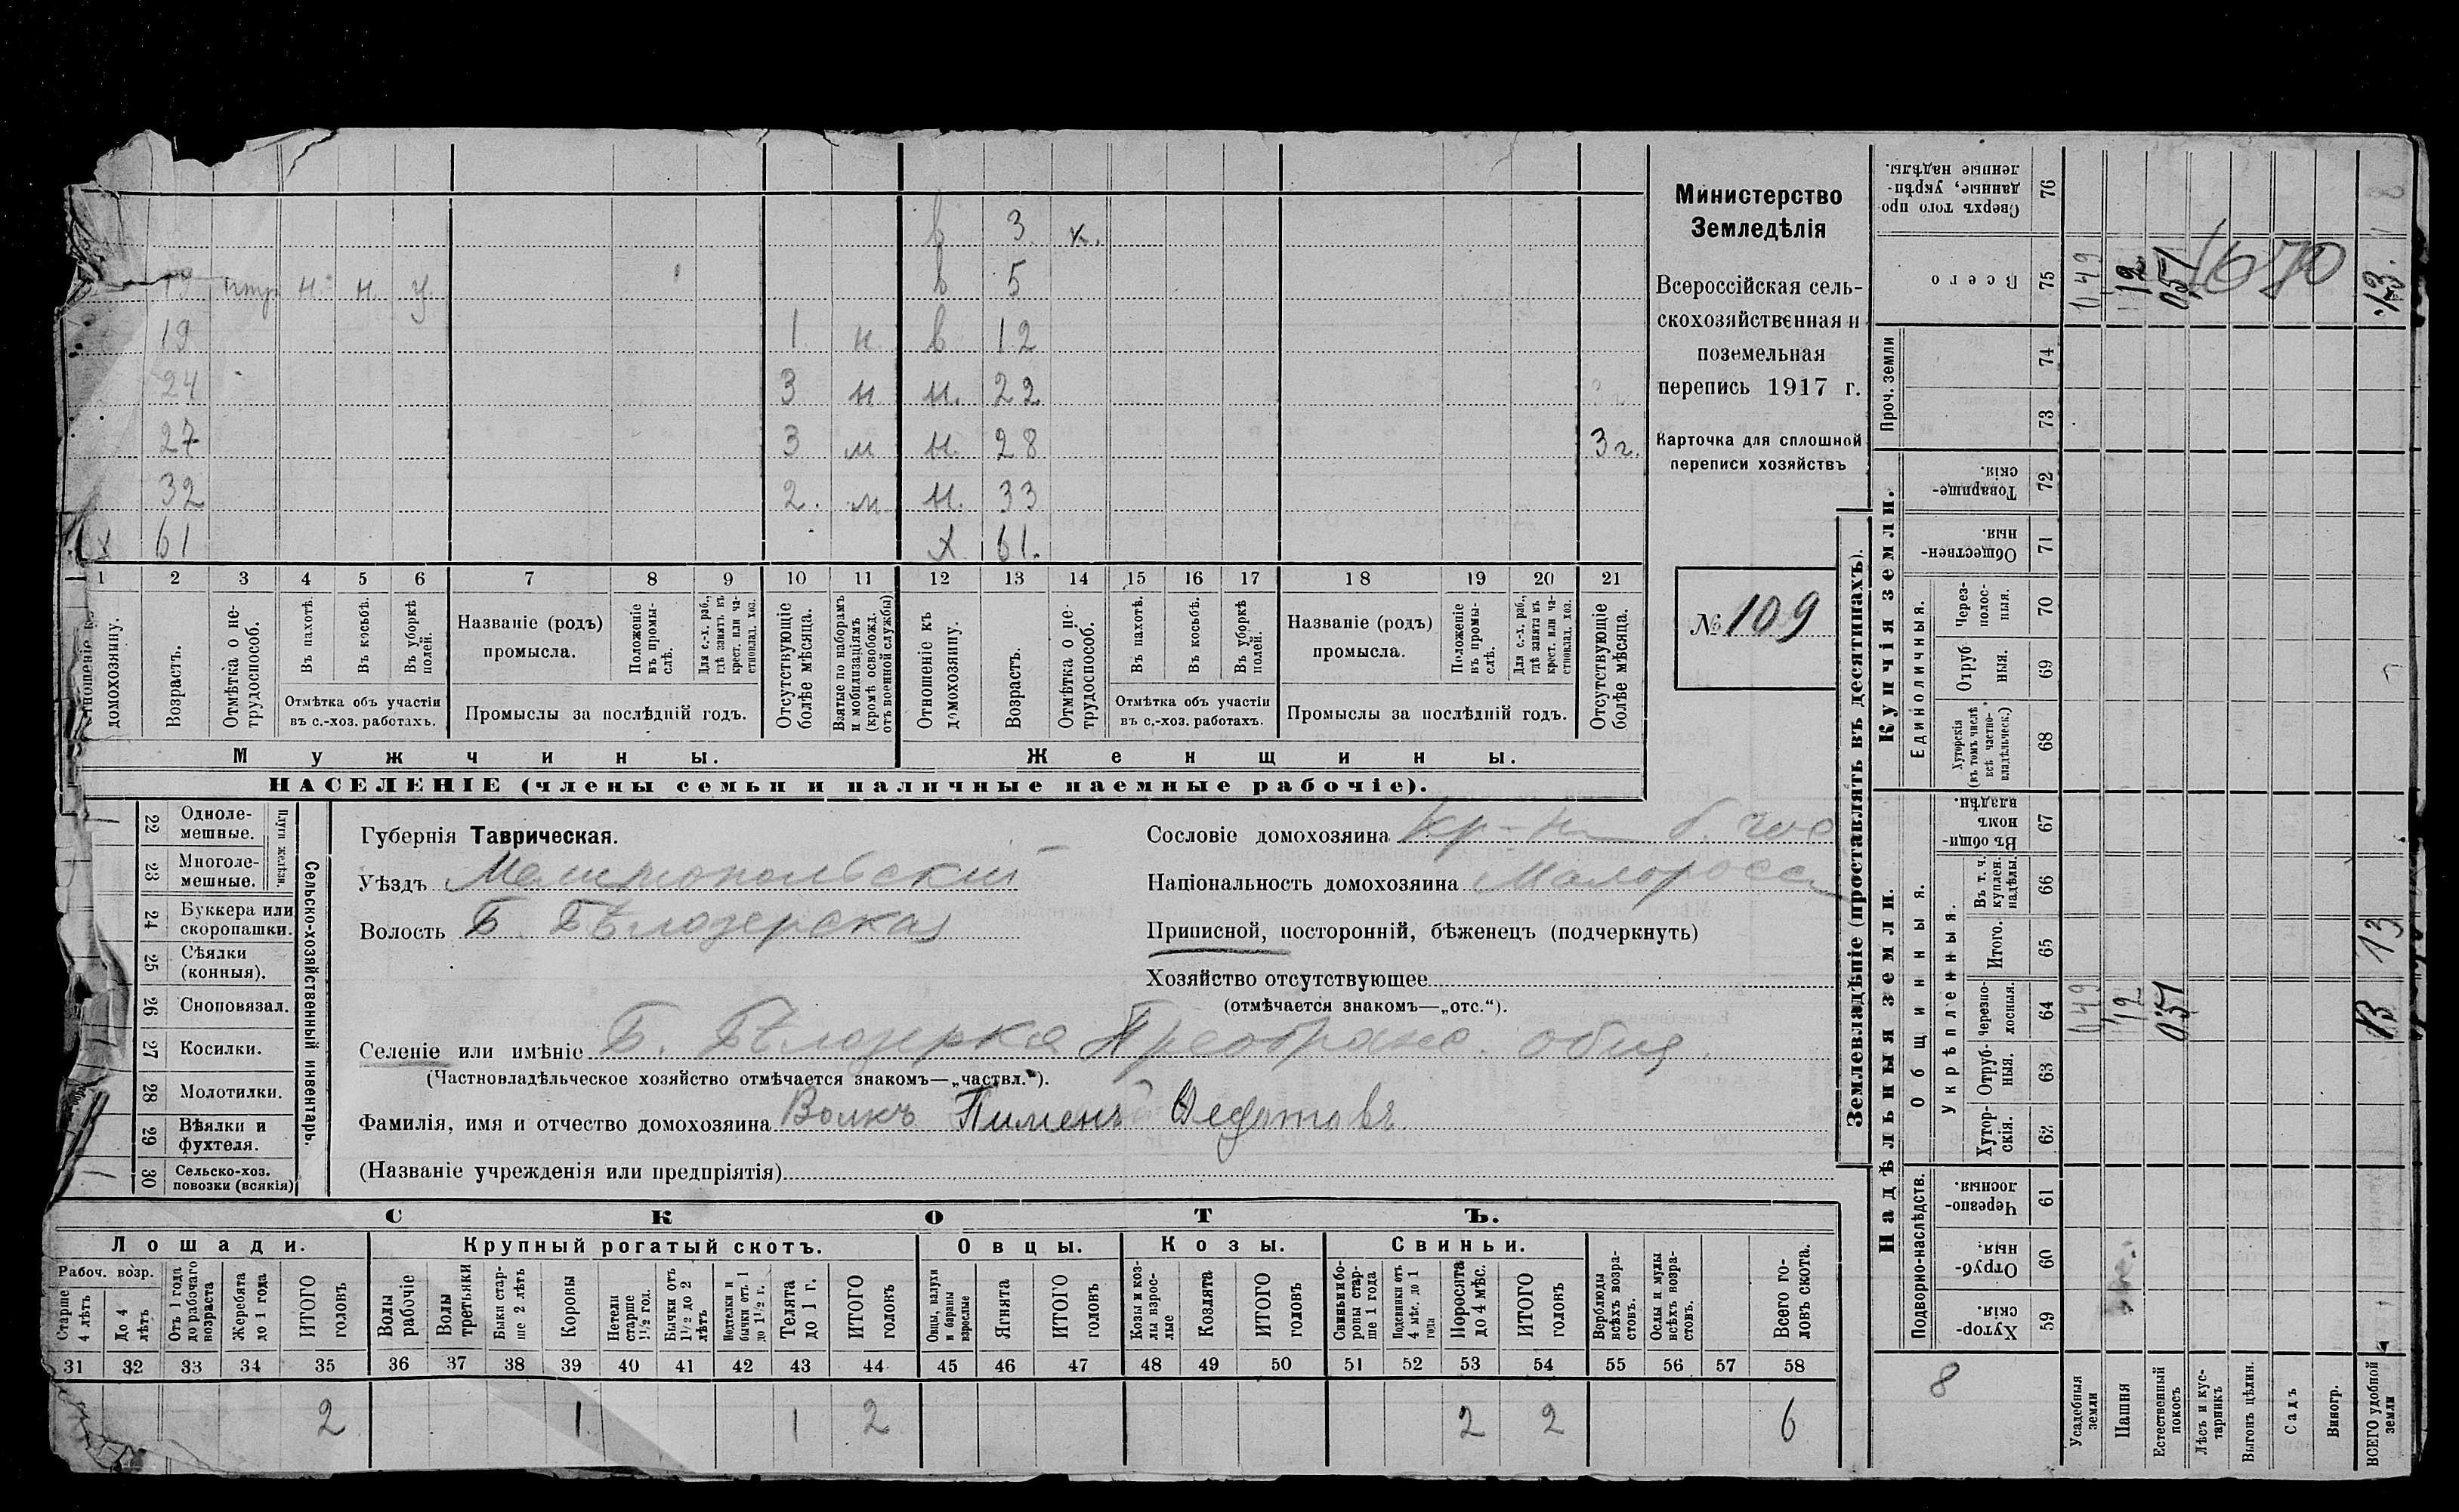 в 3 х.
19 н. н. у. в 5
19 1 н в 12
24 3 м н. 22
27 3 м н. 28 3 г.
32 2. м н. 33
х 61 х 61.
1 2 3 4 5 6 7 8 9 10 11 12 13 14 15 16 17 18 19 20 21
домохозяину.
Возрастъ.
Отмѣтка о не-
трудоспособ.
Въ пахотѣ.
Въ косьбѣ.
Въ уборкѣ
полей.
Отмѣтка объ участіи
въ с.-хоз. работахъ.
Названіе (родъ)
промысла.
Положеніе
въ промы-
слѣ.
Для с.-х. раб.,
гдѣ занятъ въ
крест. или ча-
стновлад. хоз.
Промыслы за послѣдній годъ.
Отсутствующіе
болѣе мѣсяца.
Взятые по наборамъ
и мобилизаціямъ
(кромѣ освобожд.
отъ военной службы)
Отношеніе къ
домохозяину.
Возрастъ.
Отмѣтка о не-
трудоспособ.
Въ пахотѣ.
Въ косьбѣ.
Въ уборкѣ
полей.
Отмѣтка объ участіи
въ с.-хоз. работахъ.
Названіе (родъ)
промысла.
Положеніе
въ промы-
слѣ.
Для с.-х. раб.,
гдѣ занята въ
крест. или ча-
стновлад. хоз.
Промыслы за послѣдній годъ.
Отсутствующіе
болѣе мѣсяца.
Мужчины.
Женщины.
НАСЕЛЕНІЕ (члены семьи и наличные наемные рабочіе).
Министерство
Земледѣлія
Всероссійская сель-
скохозяйственная и
поземельная
перепись 1917 г.
Карточка для сплошной
переписи хозяйствъ
№ 109
22 Одноле-
мешные.
23 Многоле-
мешные.
Плуги желѣзн.
24 Буккера или
скоропашки.
25 Сѣялки
(конныя).
26 Сноповязал.
27 Косилки.
28 Молотилки.
29 Вѣялки и
фухтеля.
30 Сельско-хоз.
повозки (всякія)
Сельско-хозяйственный инвентарь.
Губернія Таврическая.
Уѣздъ Мелитопольскій
Волость Б. Бѣлозерская
Сословіе домохозяина Кр-нъ б. гос
Національность домохозяина Малоросс
Приписной, посторонній, бѣженецъ (подчеркнуть)
Хозяйство отсутствующее
(отмѣчается знакомъ—„отс.“).
Селеніе или имѣніе Б. Бѣлозерка Преображ. общ.
(Частновладѣльческое хозяйство отмѣчается знакомъ—„частвл.“).
Фамилія, имя и отчество домохозяина Волкъ Пименъ
(Названіе учрежденія или предпріятія)
СКОТЪ.
Лошади. Крупный рогатый скотъ. Овцы. Козы. Свиньи.
Рабоч. возр.
Старше
4 лѣтъ
До 4
лѣтъ
Отъ 1 года
до рабочаго
возраста
Жеребята
до 1 года
ИТОГО
головъ
Волы
рабочіе
Волы
третьяки
Быки стар-
ше 2 лѣтъ
Коровы
Нетели
старше
1½ год.
Бычки отъ
1½ до 2
лѣтъ
Подтелки и
бычки отъ 1
до 1½ г.
Телята
до 1 г.
ИТОГО
головъ
Овцы, валухи
и бараны
взрослые
Ягнята
ИТОГО
головъ
Козы и коз-
лы взрос-
лые
Козлята
ИТОГО
головъ
Свиньи и бо-
ровы стар-
ше 1 года
Подсвинки отъ
4 мѣс. до 1
года
Поросята
до 4 мѣс.
ИТОГО
головъ
Верблюды
всѣхъ возра-
стовъ.
Ослы и мулы
всѣхъ возра-
стовъ.
Всего го-
ловъ скота.
31 32 33 34 35 36 37 38 39 40 41 42 43 44 45 46 47 48 49 50 51 52 53 54 55 56 57 58
2 1 1 2 2 2 6
Землевладѣніе (проставлять въ десятинахъ).
Купчія земли.
Надѣльныя земли.
Сверхъ того про
данные, укрѣп-
ленные надѣлы.
76
Всего
75
049
12
051
1670
13.
Проч. земли
74
73
Товарище-
скія.
72
Обществен-
ныя.
71
Единоличныя.
Через-
полос-
ныя.
70
Отруб
ныя.
69
Хуторскія
(въ томъ числѣ
всѣ частно-
владѣльческ.)
68
Общинныя.
Въ общи
номъ
владѣн.
67
Укрѣпленныя.
Въ т. ч.
куплен.
надѣлы.
66
Итого.
65
13
Черезпо-
лосныя.
64
049
12
051
13
Отруб-
ныя.
63
Хутор-
скія.
62
Подворно-наслѣдств.
Черезпо-
лосныя.
61
Отруб-
ныя.
60
Хутор-
скія.
59
8
Усадебныя
земли
Пашня
Естественный
покосъ
Лѣсъ и кус-
тарникъ
Выгонъ цѣлин.
Садъ
Виногр.
ВСЕГО удобной
земли